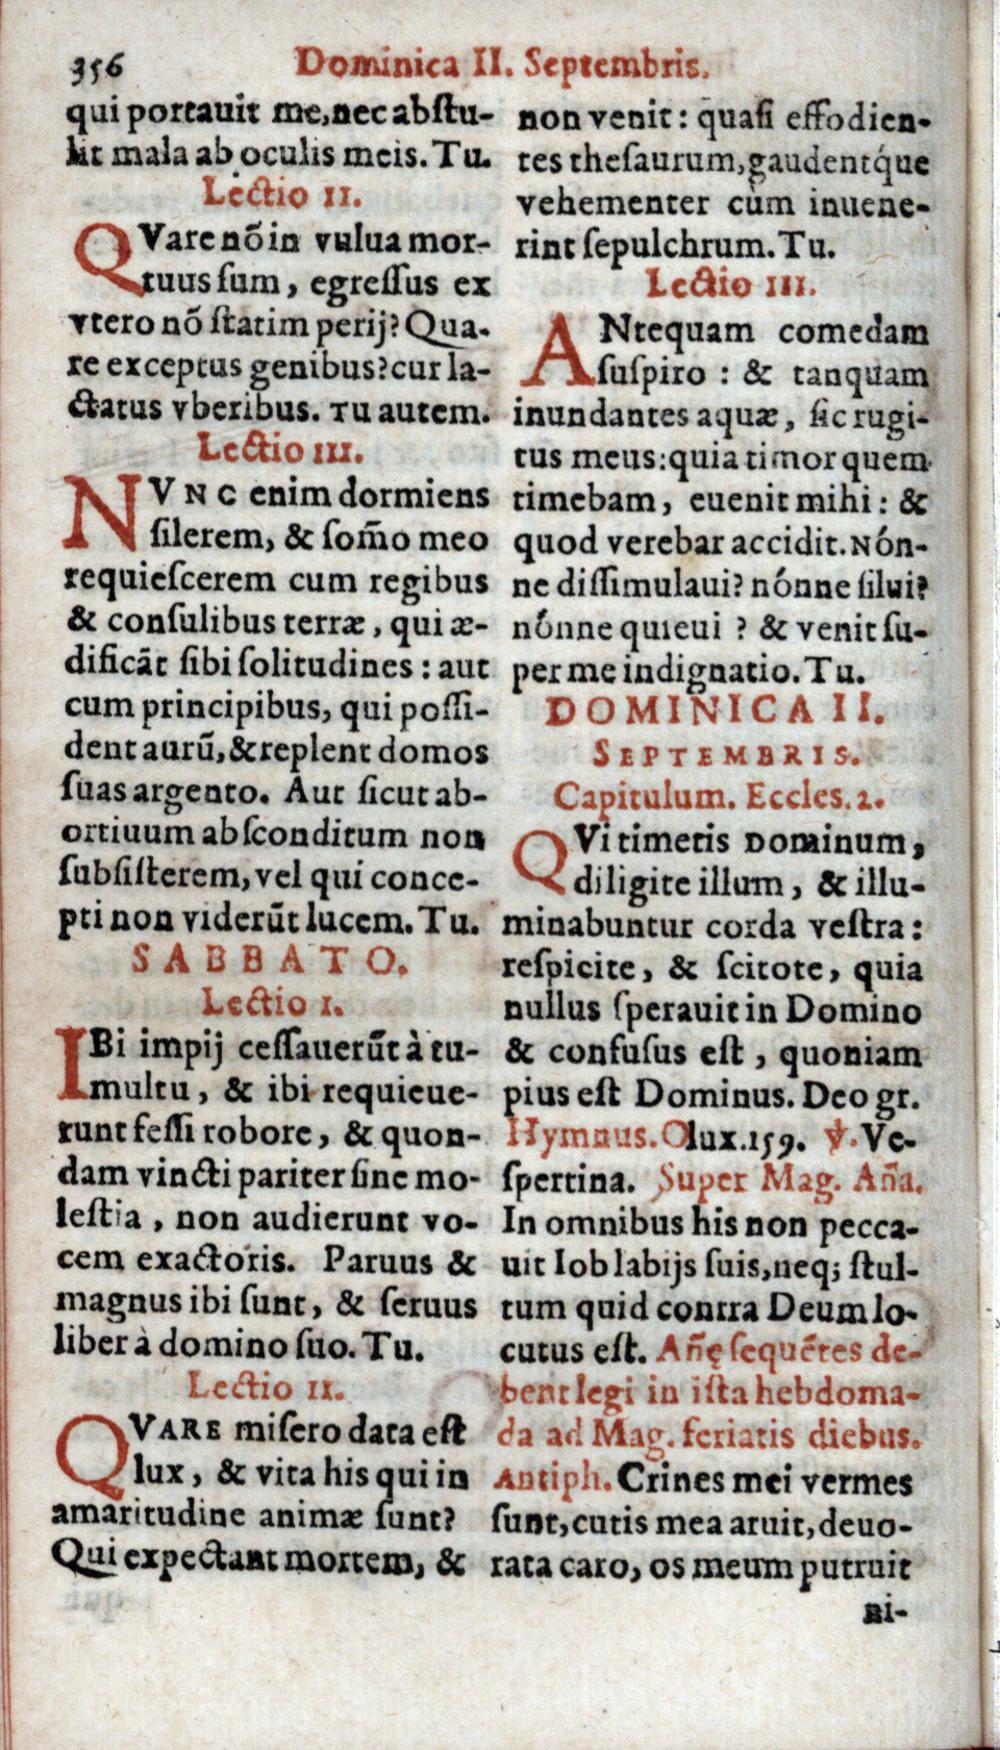 356
Dominica II. Septembris.
qui portauit me, nec abſtu-
lit mala ab oculis meis. Tu.
Lectio II.
QVare nõ in vulua mor-
tuus ſum, egreſſus ex
vtero nõ ſtatim perij? Qua-
re exceptus genibus? cur la-
ctatus vberibus. Tu autem.
Lectio III.
NVNC enim dormiens
ſilerem, & ſom̃o meo
requieſcerem cum regibus
& conſulibus terræ, qui æ-
dificãt ſibi ſolitudines: aut
cum principibus, qui poſſi-
dent aurũ, & replent domos
ſuas argento. Aut ſicut ab-
ortiuum abſconditum non
ſubſiſterem, vel qui conce-
pti non viderũt lucem. Tu.
SABBATO.
Lectio I.
IBi impij ceſſauerũt à tu-
multu, & ibi requieue-
runt feſſi robore, & quon-
dam vincti pariter ſine mo-
leſtia, non audierunt vo-
cem exactoris. Paruus &
magnus ibi ſunt, & ſeruus
liber à domino ſuo. Tu.
Lectio II.
QVARE miſero data eſt
lux, & vita his qui in
amaritudine animæ ſunt?
Qui expectant mortem, &
non venit: quaſi effodien-
tes theſaurum, gaudentq́ue
vehementer cùm inuene-
rint ſepulchrum. Tu.
Lectio III.
ANtequam comedam
ſuſpiro: & tanquam
inundantes aquæ, ſic rugi-
tus meus: quia timor quem
timebam, euenit mihi: &
quod verebar accidit. Nón-
ne diſſimulaui? nónne ſilui?
nónne quieui? & venit ſu-
per me indignatio. Tu.
DOMINICA II.
SEPTEMBRIS.
Capitulum. Eccles. 2.
QVi timetis Dominum,
diligite illum, & illu-
minabuntur corda veſtra:
reſpicite, & ſcitote, quia
nullus ſperauit in Domino
& confuſus eſt, quoniam
pius eſt Dominus. Deo gr.
Hymnus. O lux. 159. ℣. Ve-
ſpertina. Super Mag. Aña.
In omnibus his non pecca-
uit Iob labijs ſuis, neq; ſtul-
tum quid contra Deum lo-
cutus eſt. Añę ſequẽtes de-
bent legi in iſta hebdoma-
da ad Mag. feriatis diebus.
Antiph. Crines mei vermes
ſunt, cutis mea aruit, deuo-
rata caro, os meum putruit
ni-